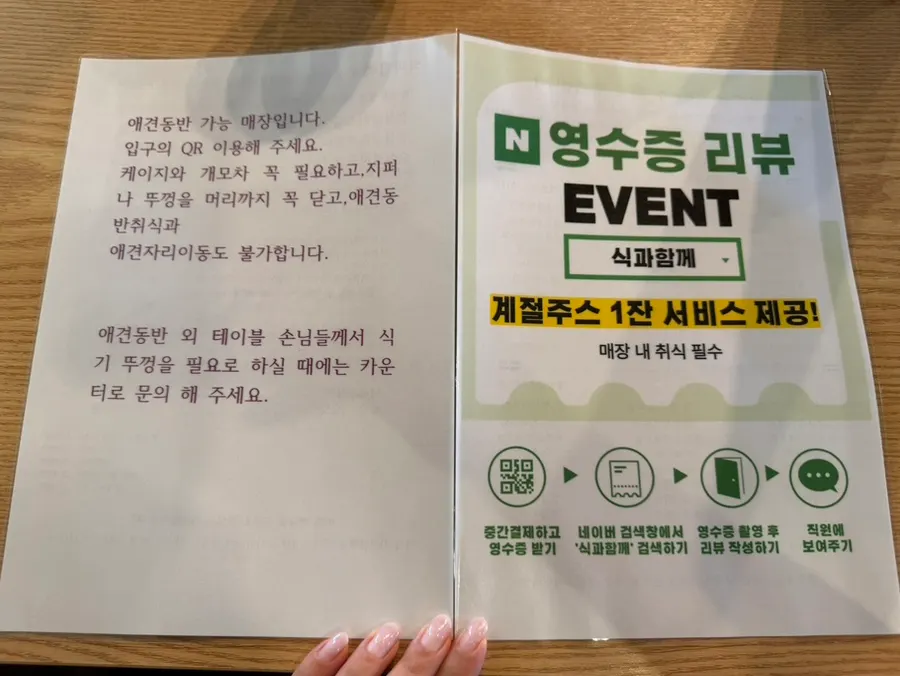 애견동반 가능 매장입니다.
입구의 QR 이용해 주세요.
케이지와 개모차 꼭 필요하고,지퍼
나 뚜껑을 머리까지 꼭 닫고,애견동
반취식과
애견자리이동도 불가합니다.
애견동반 외 테이블 손님들께서 식
기 뚜껑을 필요로 하실 때에는 카운
터로 문의 해 주세요.
N 영수증 리뷰
EVENT
식과함께
계절주스 1잔 서비스 제공!
매장 내 취식 필수
중간결제하고
영수증 받기
네이버 검색창에서
'식과함께' 검색하기
영수증 촬영 후
리뷰 작성하기
직원에
보여주기